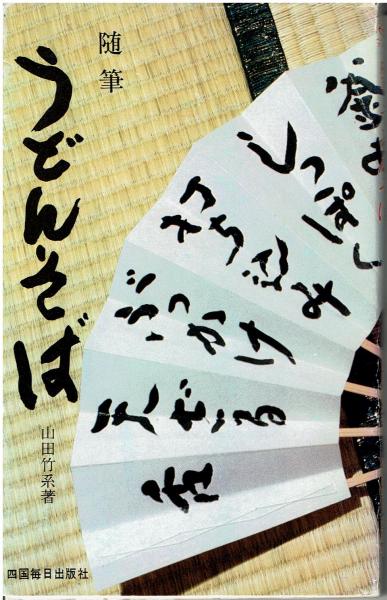 随筆
うどんそば
山田竹系著
四国毎日出版社
釜あ
しっぽく
打ち込み
ぶっかけ
天ざる